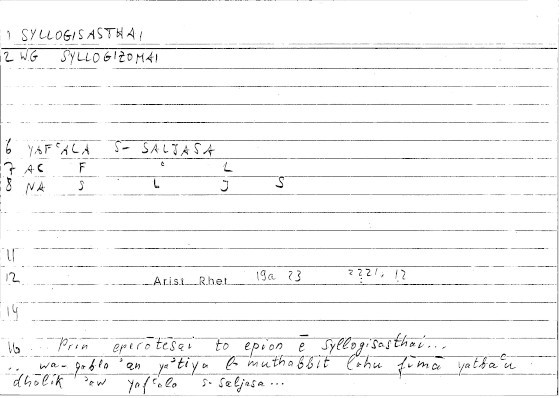 1 SYLLOGISASTHAI
2 WG SYLLOGIZOMAI
6 YAFʿALA S- SALJASA
7 AC F ʿ L
8 NA S L J S
11
12 Arist Rhet 19a 23
14
16 Prin eperōtēsai to epion ē syllogisasthai...
.. wa-qabla ʾan yaʾtiya l-muthabbit lahu fīmā yatbaʿu
dhālik ʾaw yafʿala s-saljasa...